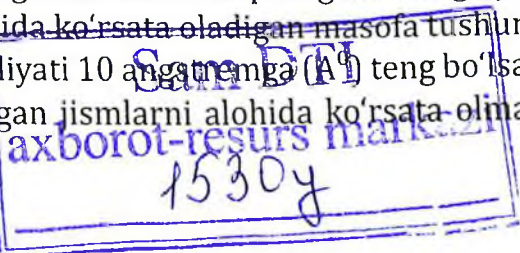 ida ko‘rsata oladigan masofa tushun
Sam DTI
liyati 10 angstremga (A⁰) teng bo‘lsa
gan jismlarni alohida ko‘rsata olma
axborot-resurs markazi
1530y